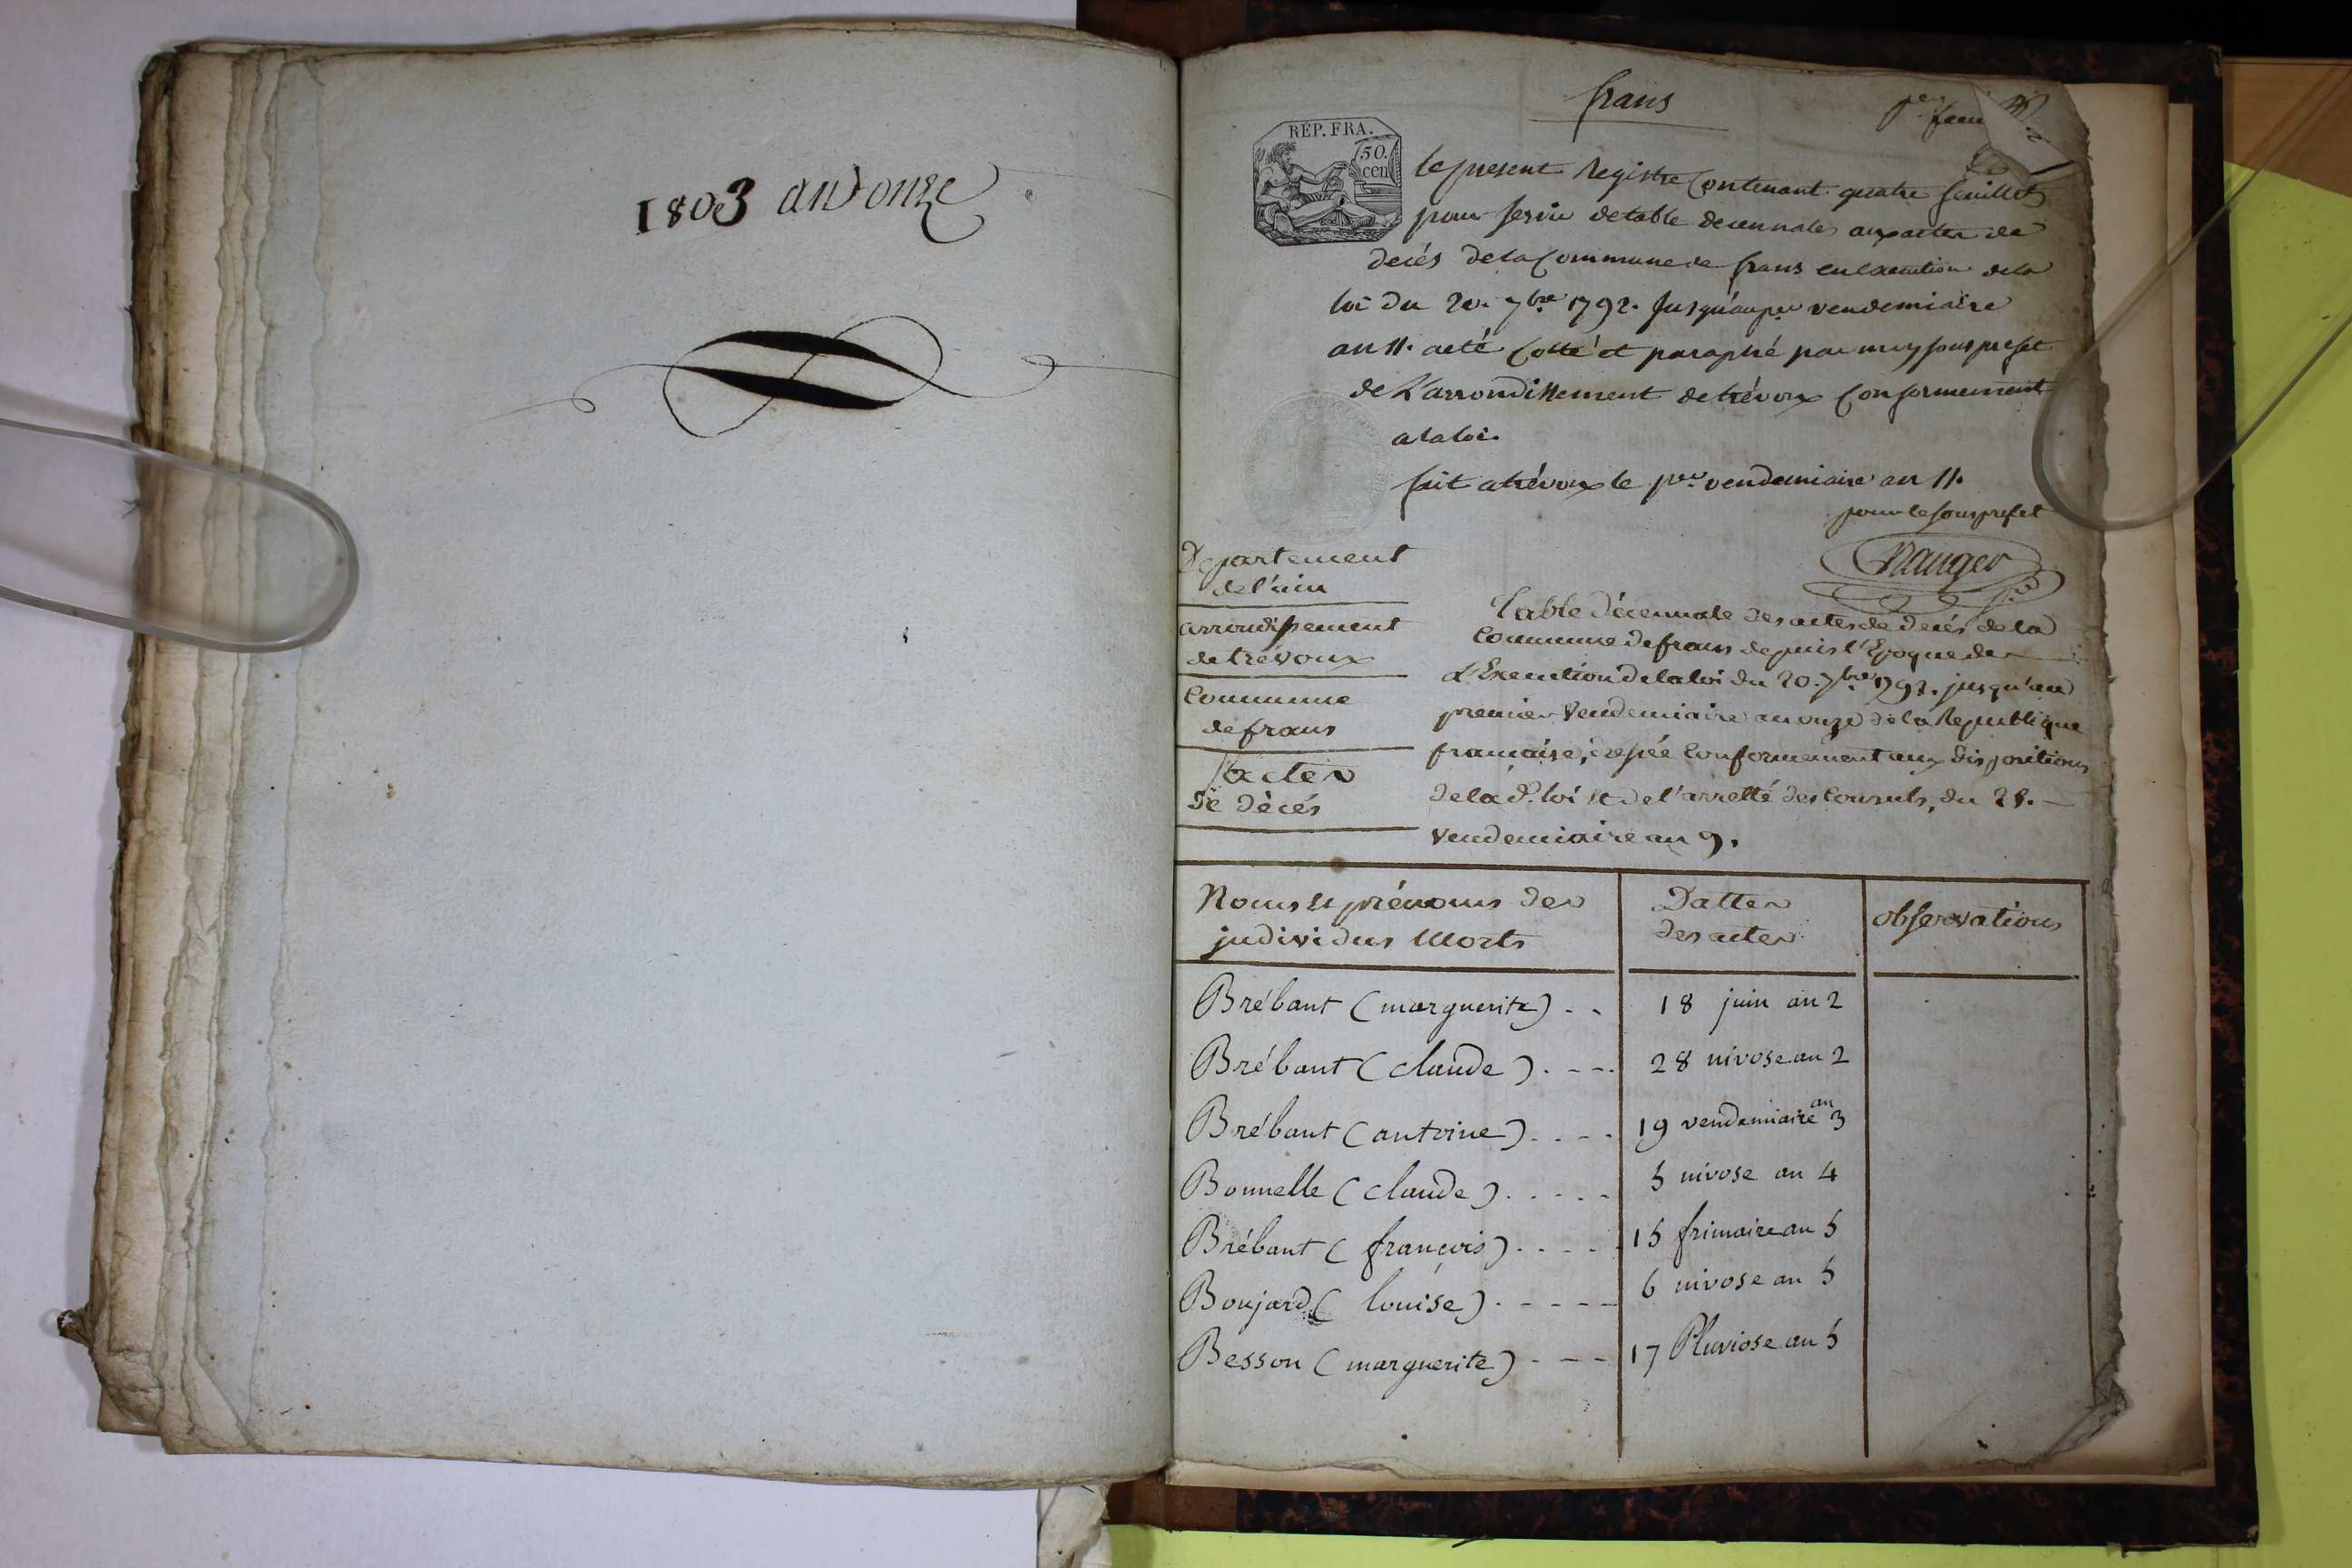 1803 an onze
frans
REP. FRA.
50.
cen
le present Registre Contenant quatre feuillets
pour servir de table decennale aux actes de
decés de la Commune de frans en Execution de la
loi du 20. 7bre 1792. Jusqu'au per vendemiaire
an 11. a eté Cotté et paraphé par moy sous prefet
de L'arrondissement de trévoux Conformement
a la loi.
fait a trévoux le per vendemiaire an 11.
pour le sous prefet
Departement
de l'ain
arrondissement
de trévoux
Commune
de frans
Actes
De Dècés
Table décennale des actes de decés de la
Commune de frans depuis l'Epoque de
L'Execution de la loi du 20. 7bre 1792. jusqu'au
premier Vendemiaire an onze de la Republique
francaise, dressée Conformement aux dispositions
de la d. loi et de l'arretté des Consuls, du 25.
Vendemiaire an 9.
Noms et prénoms des
individus Morts
Dattes
des actes
observations
Brébant (marguerite) 18 juin an 2
Brébant (claude) 28 nivose an 2
Brébant (antoine) 19 vendemiaire an 3
Bonnelle (claude) 5 nivose an 4
Brébant (françois) 15 frimaire an 5
Boujard (louise) 6 nivose an 5
Besson (marguerite) 17 Pluviose an 5